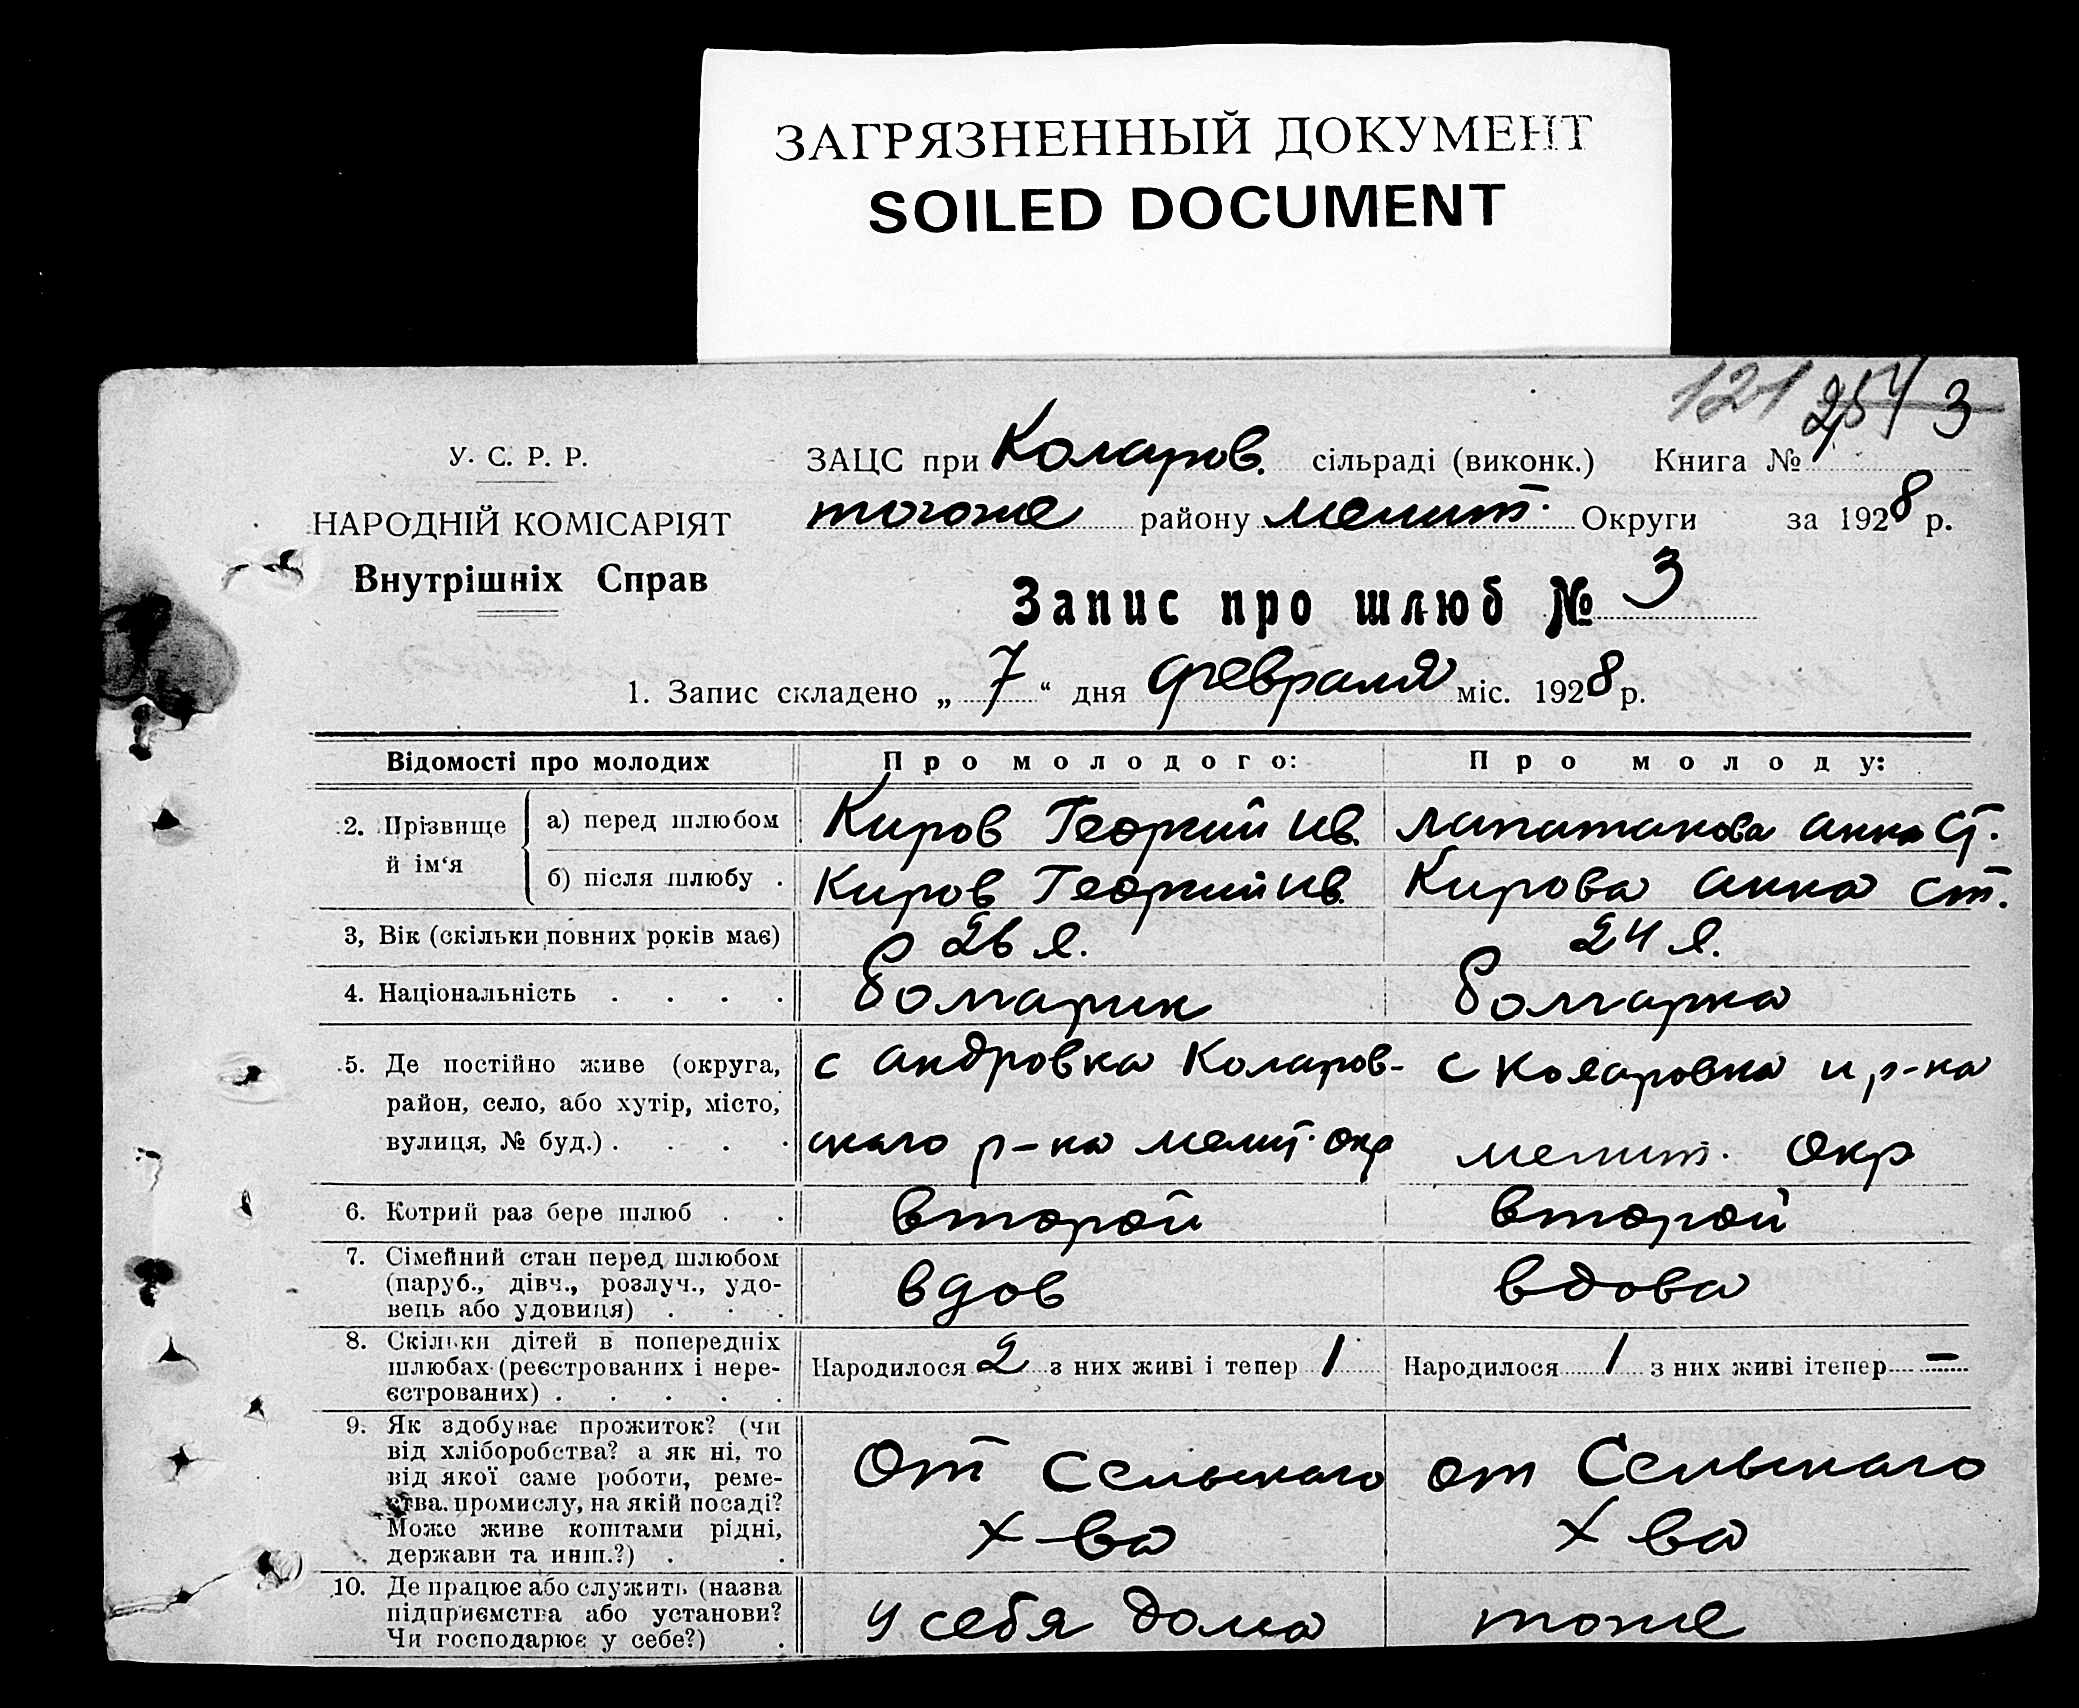 ЗАГРЯЗНЕННЫЙ ДОКУМЕНТ
SOILED DOCUMENT
121 254 3
У. С. Р. Р.
НАРОДНІЙ КОМІСАРІЯТ
Внутрішніх Справ
ЗАЦС при Коларов. сільраді (виконк.) Книга №
тогоже району мелит. Округи за 1928 р.
Запис про шлюб № 3
1. Запис складено „ 7 “ дня февраля міс. 1928 р.
Відомості про молодих
Про молодого:
Про молоду:
2. Прізвище й ім‘я
а) перед шлюбом
Киров Георгий Ив.
Лапатакова Анна Ст.
б) після шлюбу .
Киров Георгий Ив.
Кирова Анна Ст.
3, Вік (скільки повних років має)
26 л.
24 л.
4. Національність . . . .
болгарин
болгарка
5. Де постійно живе (округа,
район, село, або хутір, місто,
вулиця, № буд.) . . . .
с Андровка Коларов-
скаго р-на мелит. окр
с Коларовка и р-на
мелит. Окр
6. Котрий раз бере шлюб . .
второй
второй
7. Сімейний стан перед шлюбом
(паруб., дівч., розлуч., удо-
вець або удовиця) . . .
вдов
вдова
8. Скільки дітей в попередніх
шлюбах (реєстрованих і нере-
єстрованих) . . . . .
Народилося 2 з них живі і тепер 1
Народилося 1 з них живі ітепер —
9. Як здобуває прожиток? (чи
від хліборобства? а як ні, то
від якої саме роботи, реме-
ства. промислу, на якій посаді?
Може живе коштами рідні,
держави та инш.?) . .
От Сельскаго
х-ва
от Сельскаго
х ва
10. Де працює або служить (назва
підприємства або установи?
Чи господарює у себе?) .
у себя дома
тоже